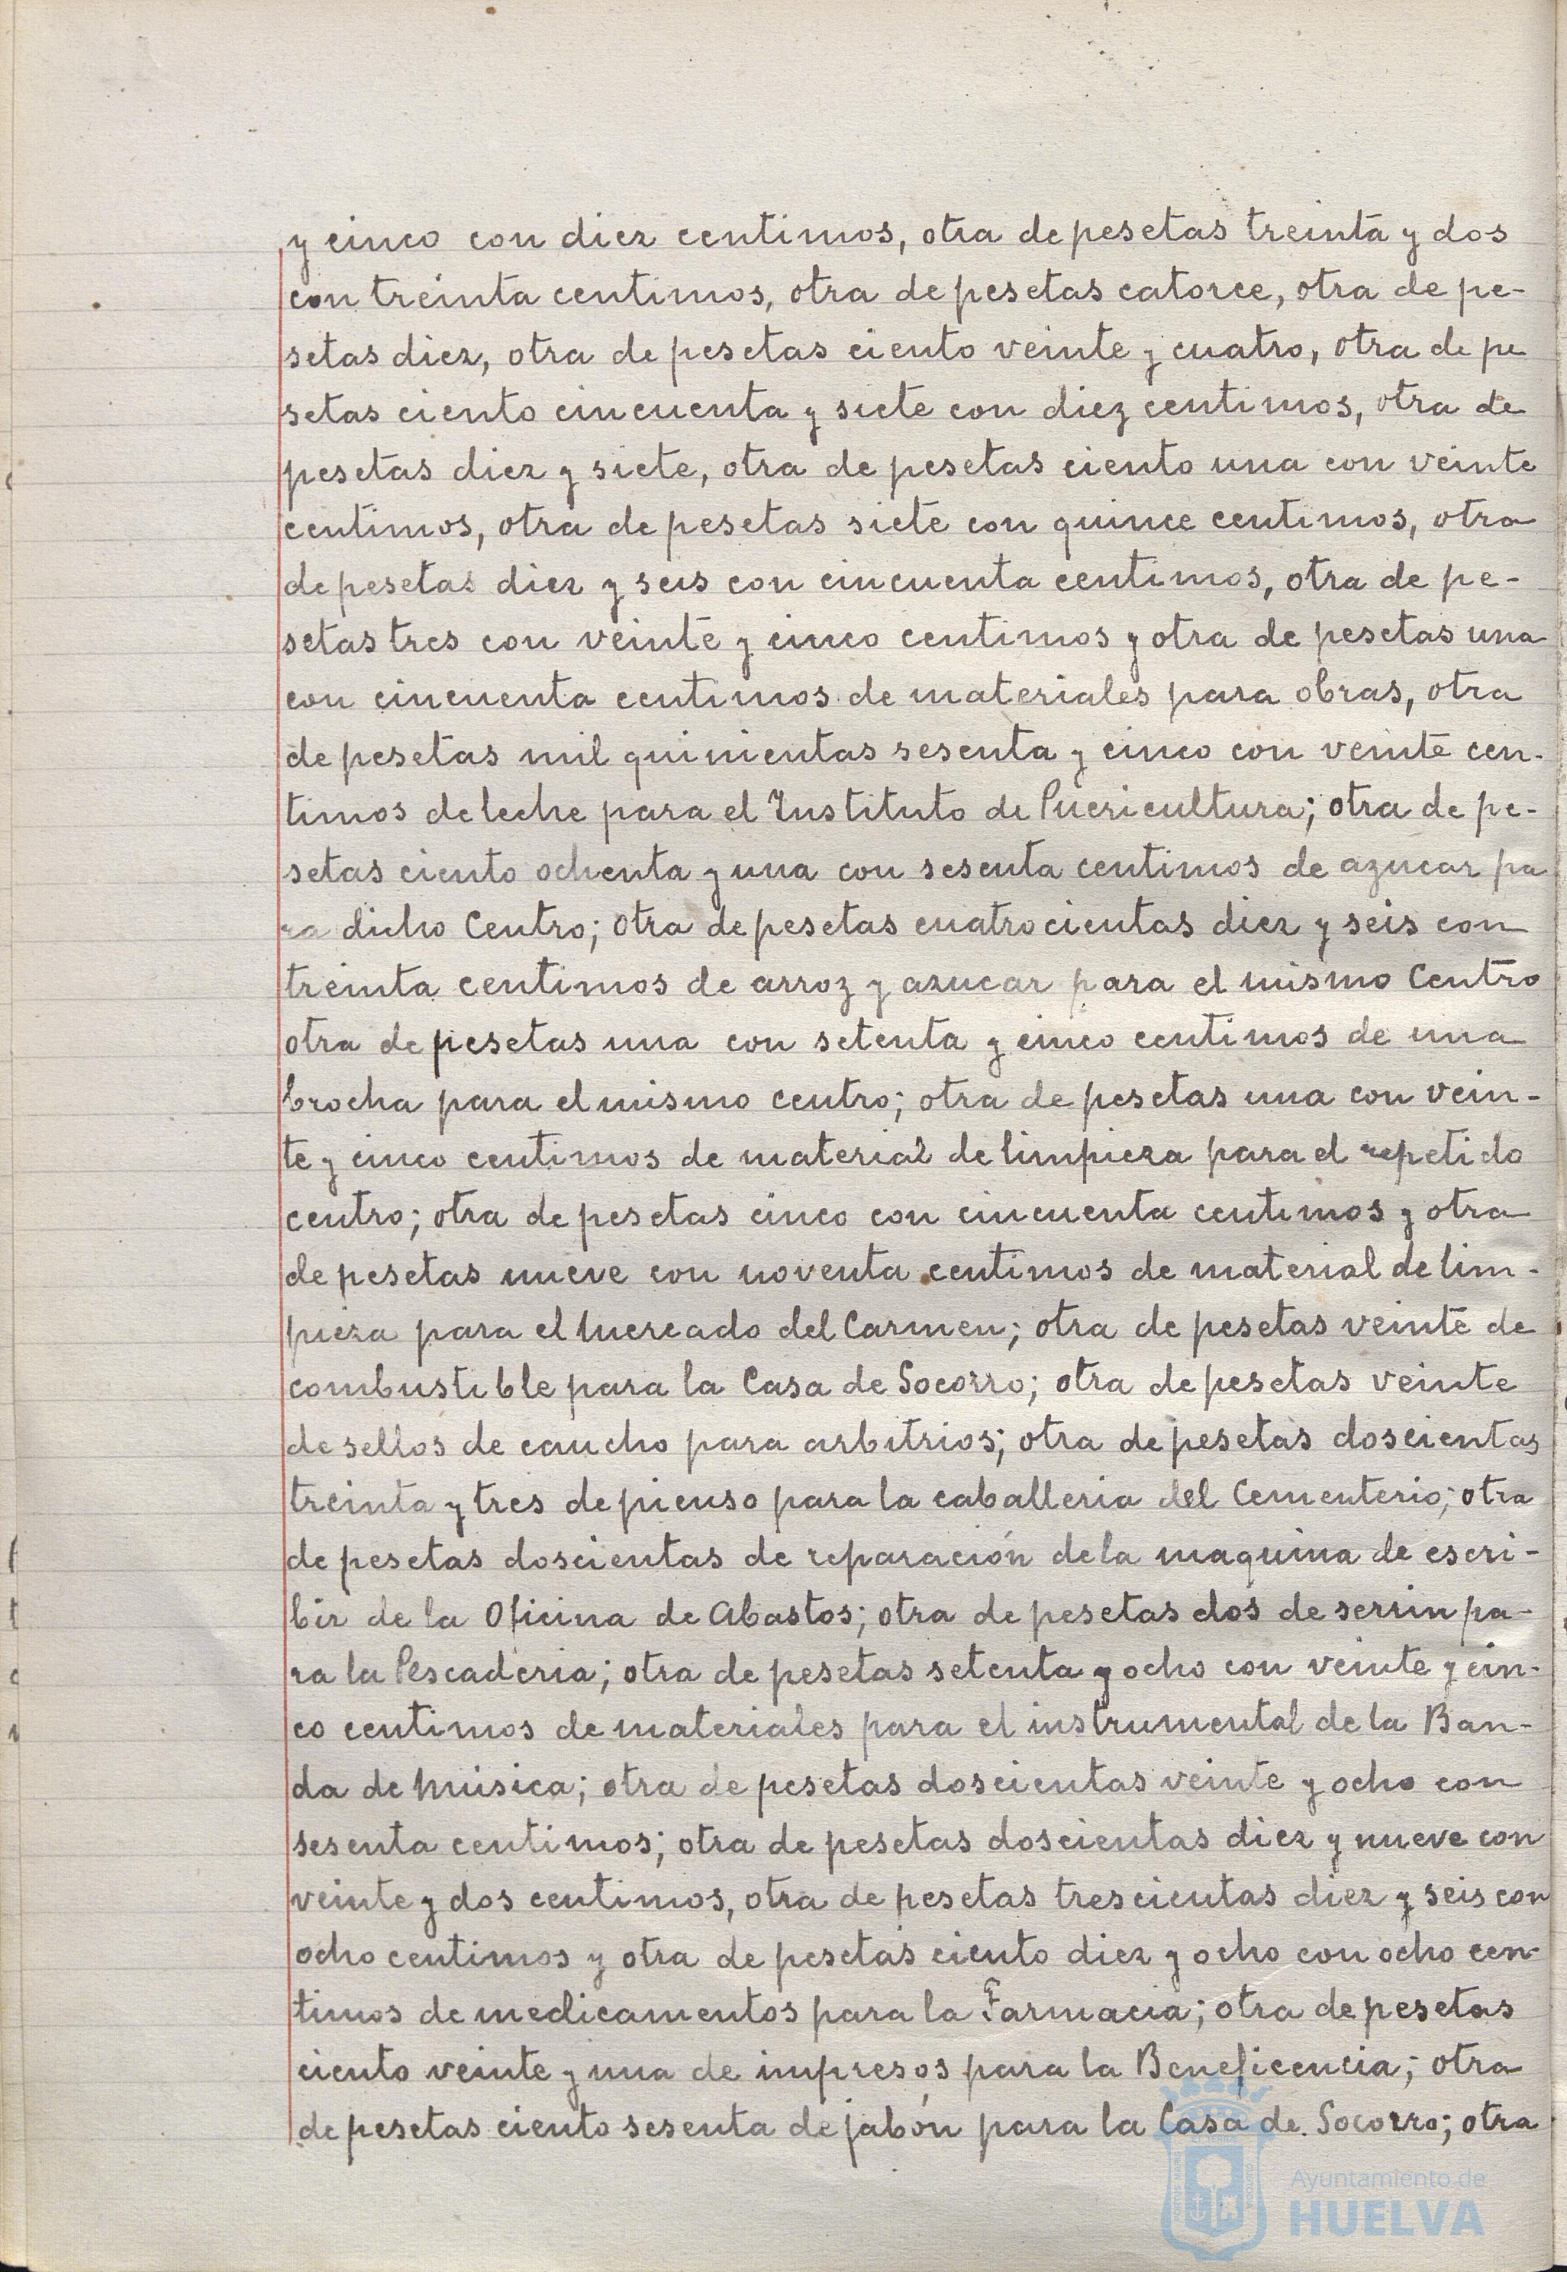 y cinco con diez centimos, otra de pesetas treinta y dos
con treinta centimos, otra de pesetas catorce, otra de pe-
setas diez, otra de pesetas ciento veinte y cuatro, otra de pe
setas ciento cincuenta y siete con diez centimos, otra de
pesetas diez y siete, otra de pesetas ciento una con veinte
centimos, otra de pesetas siete con quince centimos, otra
de pesetas diez y seis con cincuenta centimos, otra de pe-
setas tres con veinte y cinco centimos y otra de pesetas una
con cincuenta centimos de materiales para obras, otra
de pesetas mil quinientas sesenta y cinco con veinte cen-
timos de leche para el Instituto de Puericultura; otra de pe-
setas ciento ochenta y una con sesenta centimos de azucar pa
ra dicho Centro; otra de pesetas cuatrocientas diez y seis con
treinta centimos de arroz y azucar para el mismo Centro
otra de pesetas una con setenta y cinco centimos de una
brocha para el mismo centro; otra de pesetas una con vein-
te y cinco centimos de material de limpieza para el repetido
centro; otra de pesetas cinco con cincuenta centimos y otra
de pesetas nueve con noventa centimos de material de lim-
pieza para el Mercado del Carmen; otra de pesetas veinte de
combustible para la Casa de Socorro; otra de pesetas veinte
de sellos de caucho para arbitrios; otra de pesetas doscientas
treinta y tres de pienso para la caballeria del Cementerio; otra
de pesetas doscientas de reparación de la maquina de escri-
bir de la Oficina de Abastos; otra de pesetas dos de serrin pa-
ra la Pescaderia; otra de pesetas setenta y ocho con veinte y cin-
co centimos de materiales para el instrumental de la Ban-
da de Música; otra de pesetas doscientas veinte y ocho con
sesenta centimos; otra de pesetas doscientas diez y nueve con
veinte y dos centimos, otra de pesetas trescientas diez y seis con
ocho centimos y otra de pesetas ciento diez y ocho con ocho cen-
timos de medicamentos para la Farmacia; otra de pesetas
ciento veinte y una de impresos para la Beneficencia; otra
de pesetas ciento sesenta de jabón para la Casa de Socorro; otra
Ayuntamiento de
HUELVA